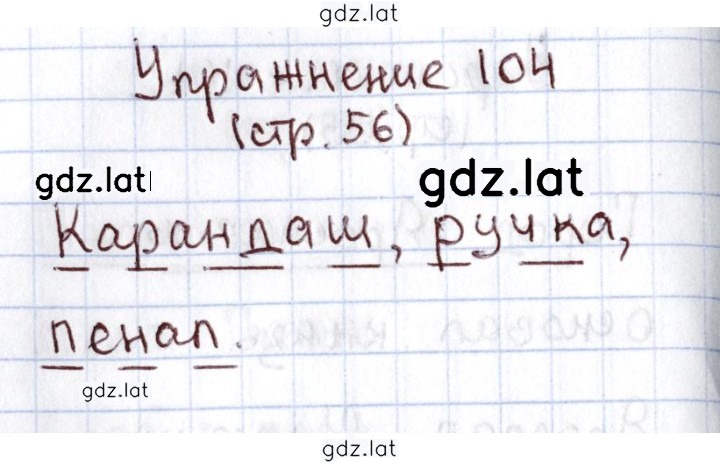 gdz.lat
Упражнение 104
(стр. 56)
gdz.lat
gdz.lat
Карандаш, ручка,
пенал.
gdz.lat
gdz.lat